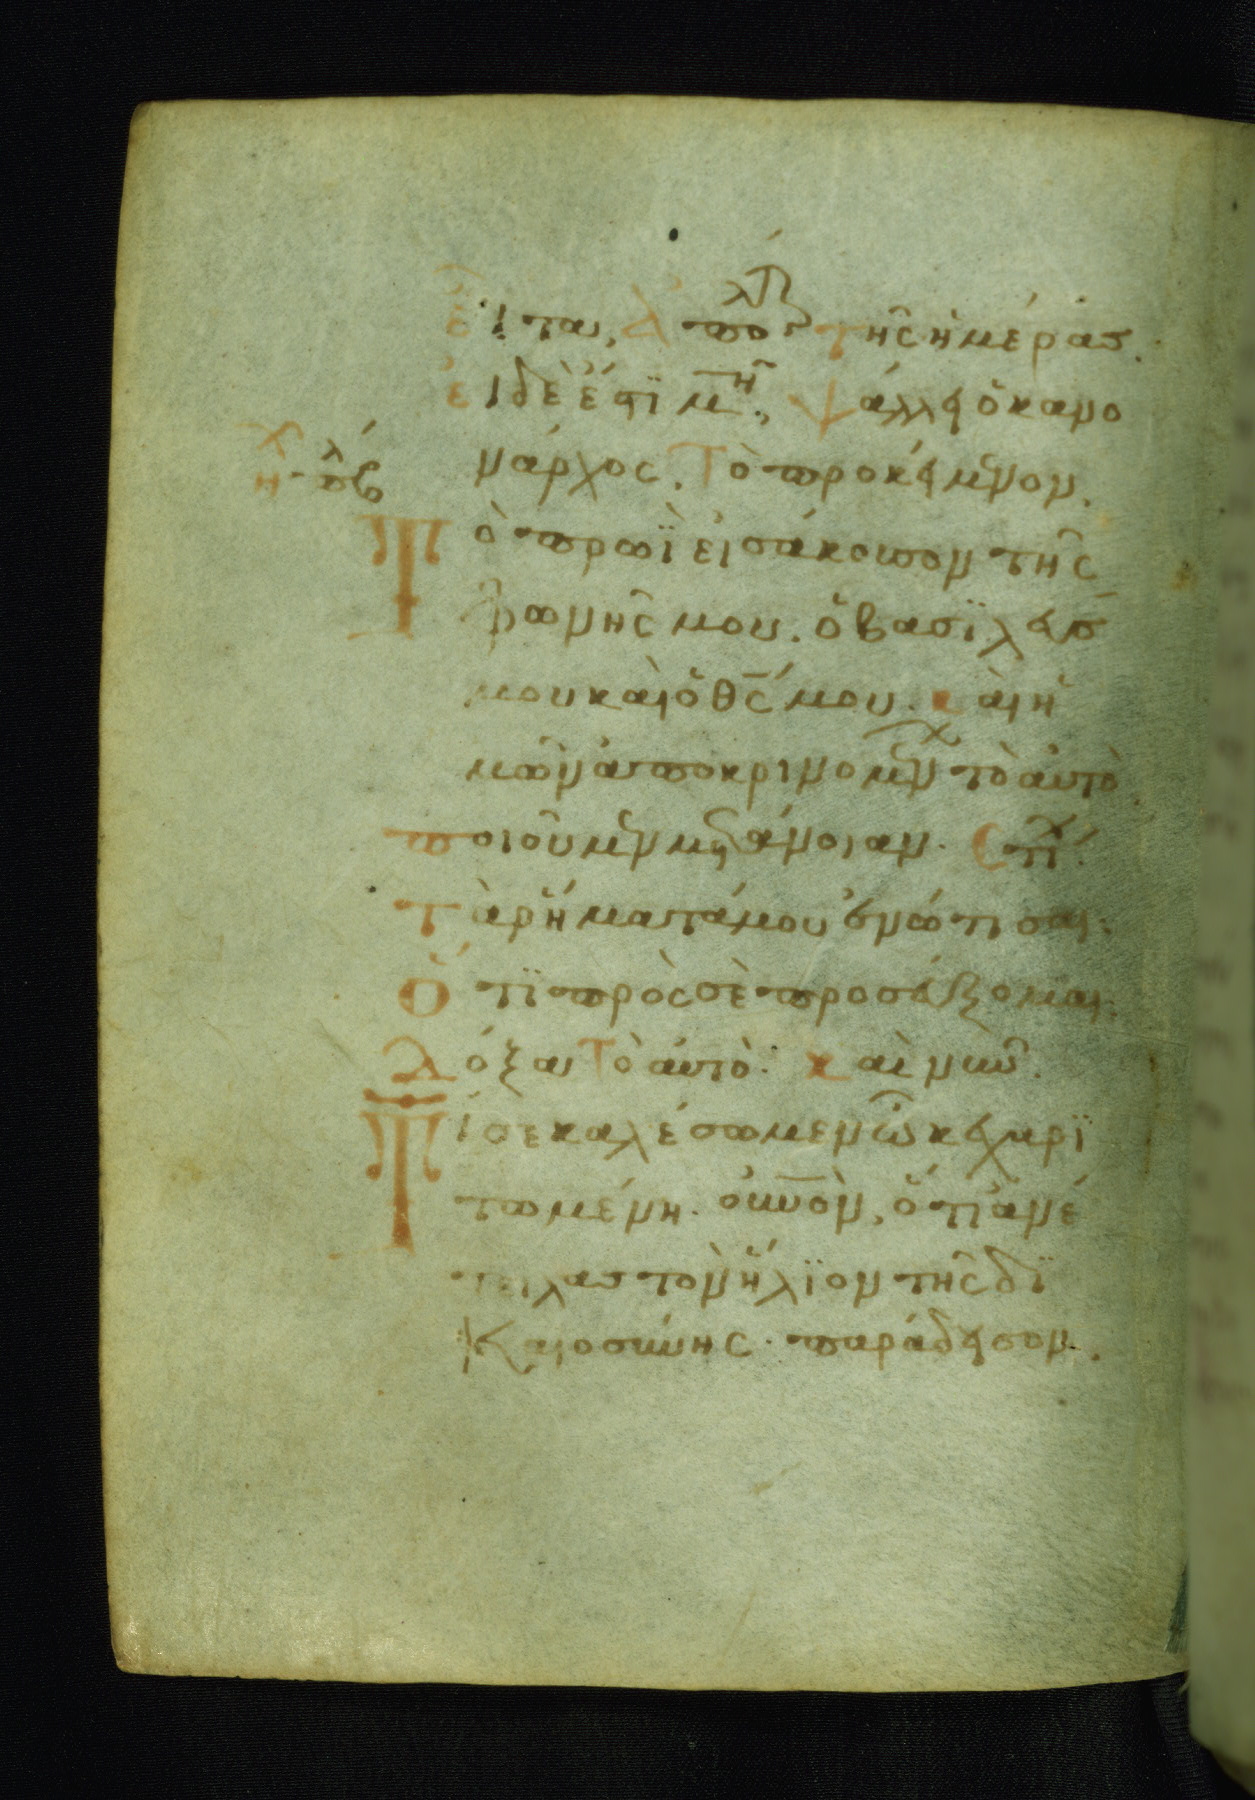 εἶτα, ἀπολτ τῆς ἡμέρας.
εἰ δὲ ἔστὶ μη, ψάλλει ὁ κανο
νάρχος. Τὸ προκείμενον.
Τὸ πρωῒ εἰσάκουσον τῆς
φωνῆς μου. ὁ βασιλεύς
μου καὶ ὁ θς μου. καὶ ἡ
μῶν ἀποκρινομένων τὸ αὐτὸ
ποιοῦμεν μετάνοιαν. Στιχ
τὰ ῥήματά μου ἐνώτισαι.
Ὅτι πρὸς σὲ προσεύξομαι.
Δόξα Τὸ αὐτό. καὶ νῦν.
Τί σε καλέσωμεν ὦ κεχαρι
τωμένη. οὐνὸν, ὅτι ἀνέ
τειλας τὸν ἥλιον τῆς δι
καιοσύνης. παράδεισον.